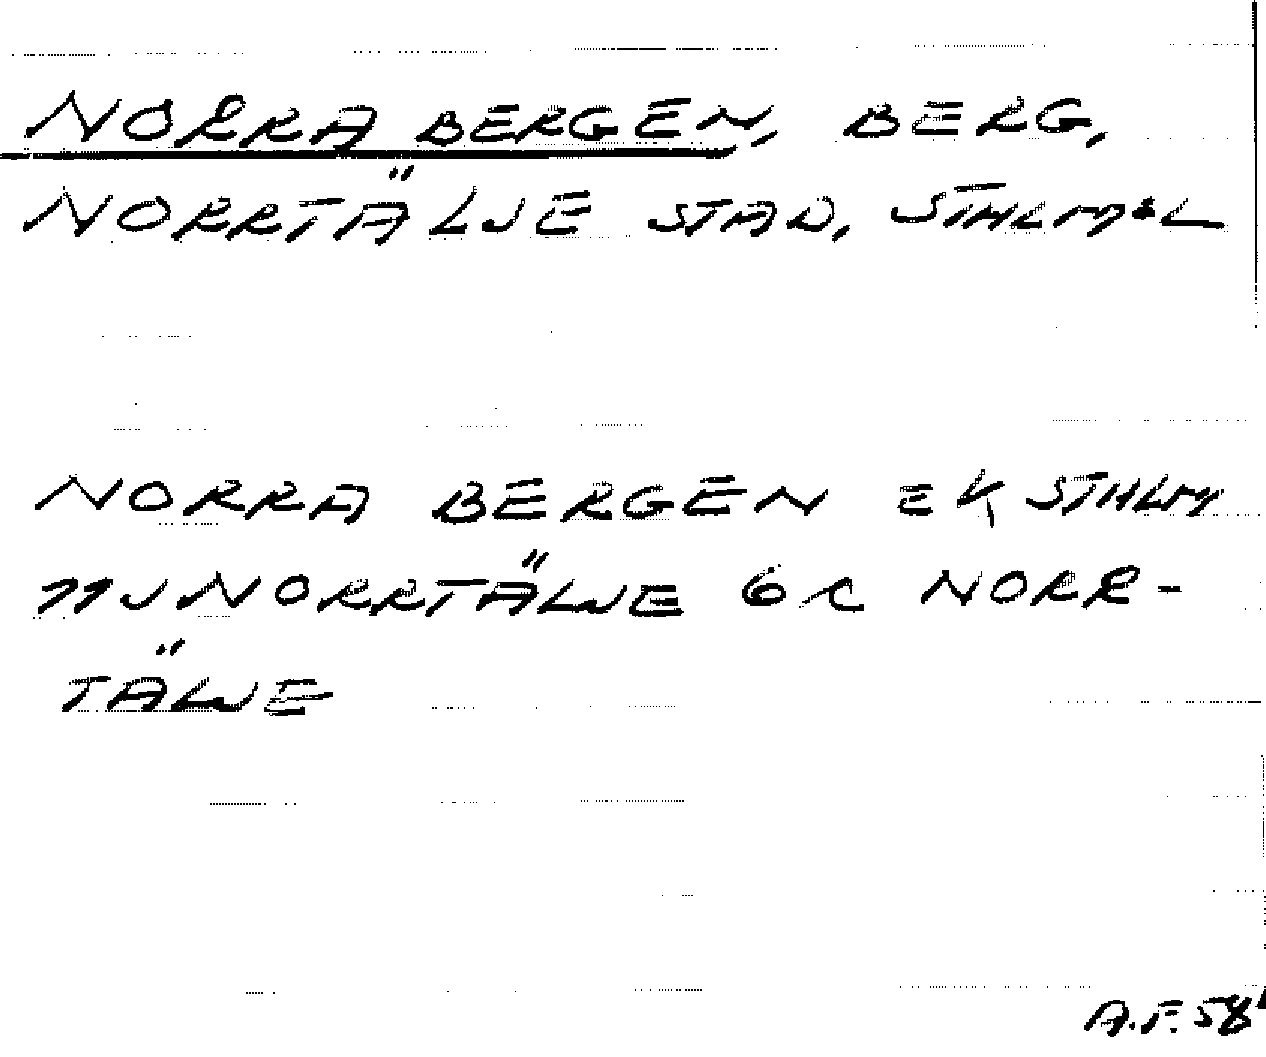 NORRA BERGEN, BERG,
NORRTÄLJE STAD, STHLMSL
NORRA BERGEN EK STHLM
11J NORRTÄLJE 6c NORR-
TÄLJE
A.F. 58